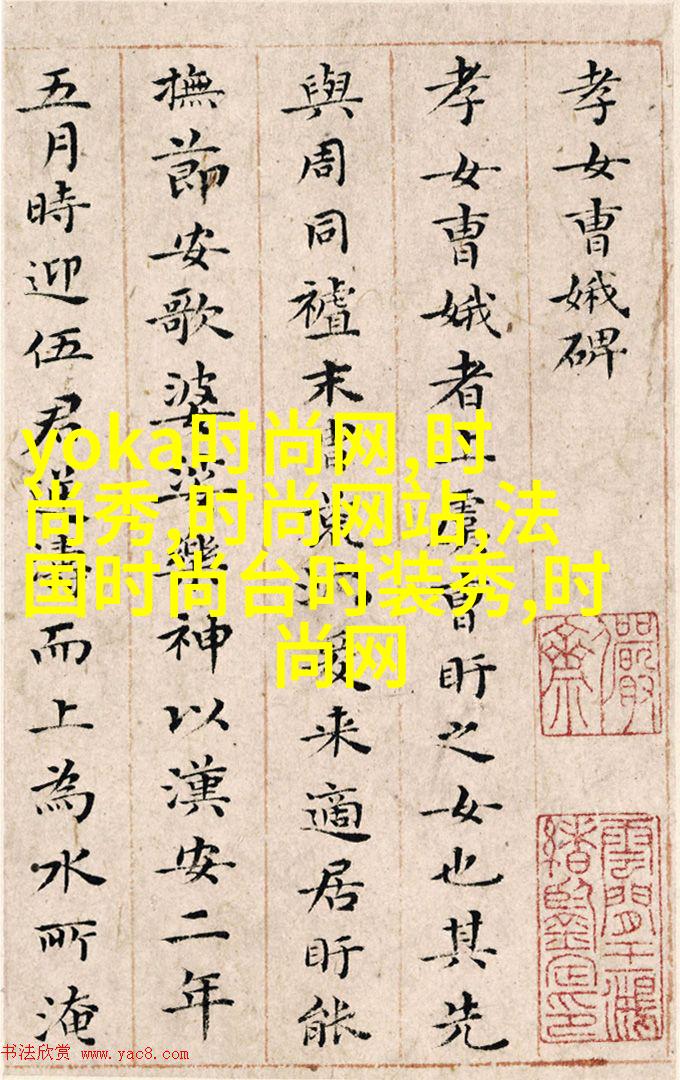 孝女曹娥碑
孝女曹娥者上虞曹盱之女也其先
與周同禮末胄荒爰来適居盱能
撫節安歌婆娑樂神以漢安二年
五月時迎伍君逆濤而上為水所淹
yoka时尚网,时
尚秀,时尚网站,法
国时尚台时装秀,时
尚网
儼齋
雲間王鴻緒鑒定印
书法欣赏 www.yac8.com